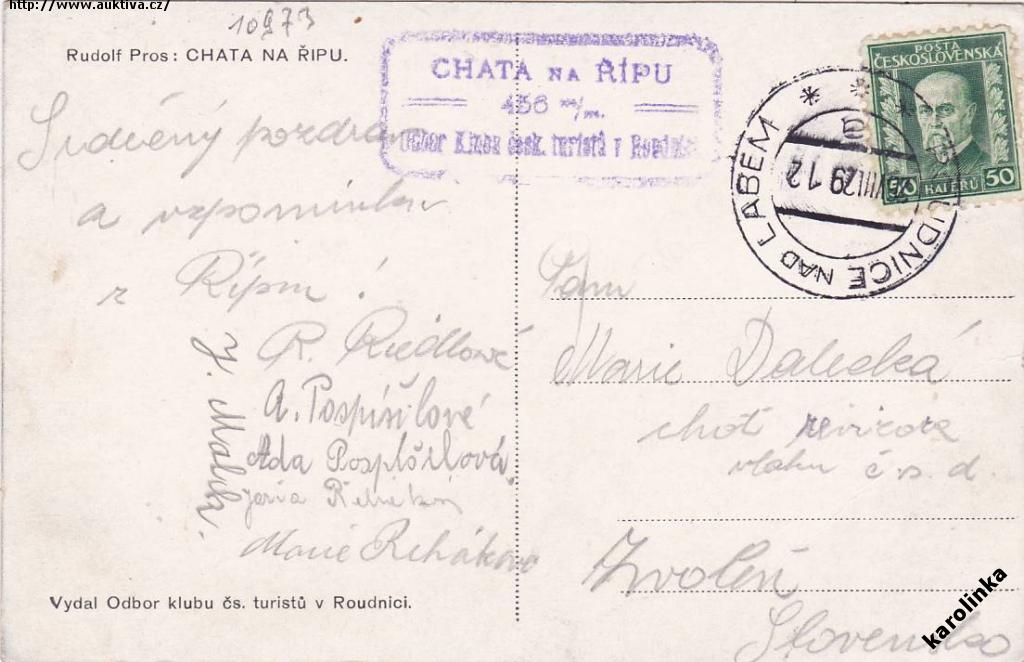 http://www.auktiva.cz/
10973
Rudolf Pros: CHATA NA ŘIPU.
CHATA NA ŘÍPU
456 m/m.
Odbor Klubu česk. turistů v Roudnici
Srdečný pozdrav
a vzpomínku
z Řípu!
R. Riedlové
A. Pospíšilové
Ada Pospíšilová
Marie Řeháková
J. Malík.
Vydal Odbor klubu čs. turistů v Roudnici.
POSTA
ČESKOSLOVENSKÁ
50 HALÉRŮ 50
ROUDNICE NAD LABEM
VIII.29 12
Paní
Marie Dalecká
choť revizora
vlaku č.s.d.
Zvolen
Slovensko
karolinka